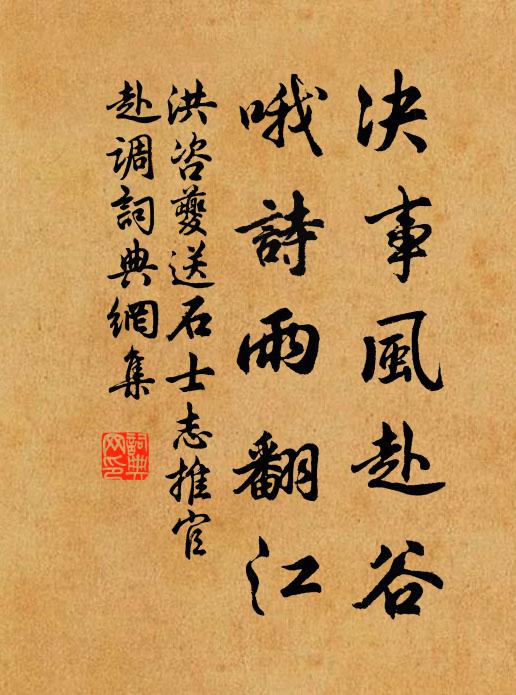 决事風赴谷
哦詩雨翻江
洪咨夔送石士志推官
赴调詞典網集
詞典网印